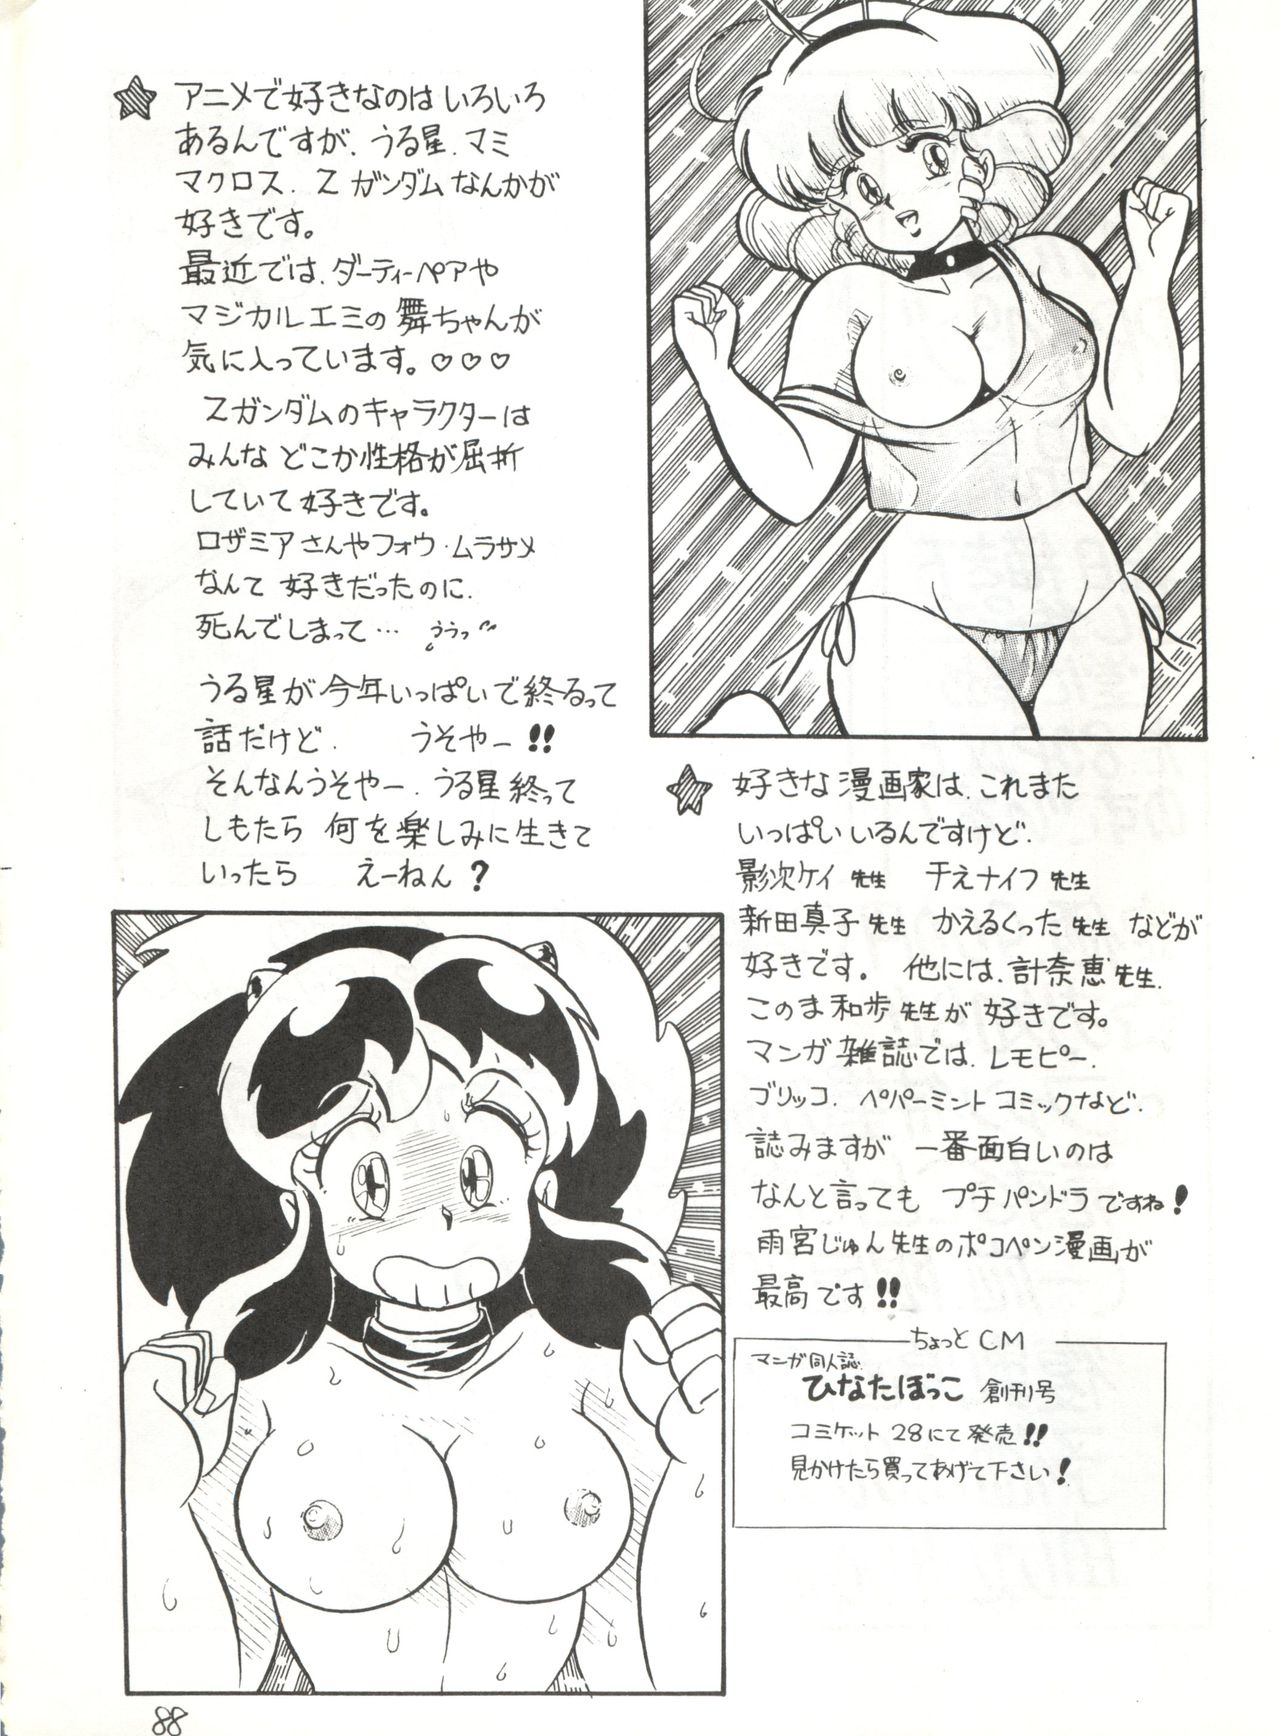 アニメで好きなのは いろいろ
あるんですが、うる星、マミ
マクロス、Z ガンダム なんかが
好きです。
最近では、ダーティーペアや
マジカルエミの 舞ちゃんが
気に入っています。♡♡♡
Zガンダムのキャラクターは
みんな どこか性格が屈折
していて 好きです。
ロザミアさんやフォウ・ムラサメ
なんて 好きだったのに、
死んでしまって… ううっ
うる星が 今年いっぱいで 終るって
話だけど、 うそやー!!
そんなんうそやー、うる星 終って
しもたら 何を楽しみに生きて
いったら えーねん?
好きな 漫画家は、これまた
いっぱい いるんですけど、
影次ケイ 先生 千之ナイフ 先生
新田真子 先生 かえるくった 先生 などが
好きです。 他には、計奈恵先生、
このま 和歩 先生が 好きです。
マンガ 雑誌では、レモピー、
ブリッコ、ペパーミント コミックなど、
読みますが 一番面白いのは
なんと言っても プチ パンドラ ですね!
雨宮じゅん先生の ポコペン漫画が
最高です!!
ちょっと CM
マンガ同人誌
ひなたぼっこ 創刊号
コミケット 28にて 発売!!
見かけたら買ってあげて下さい!
88